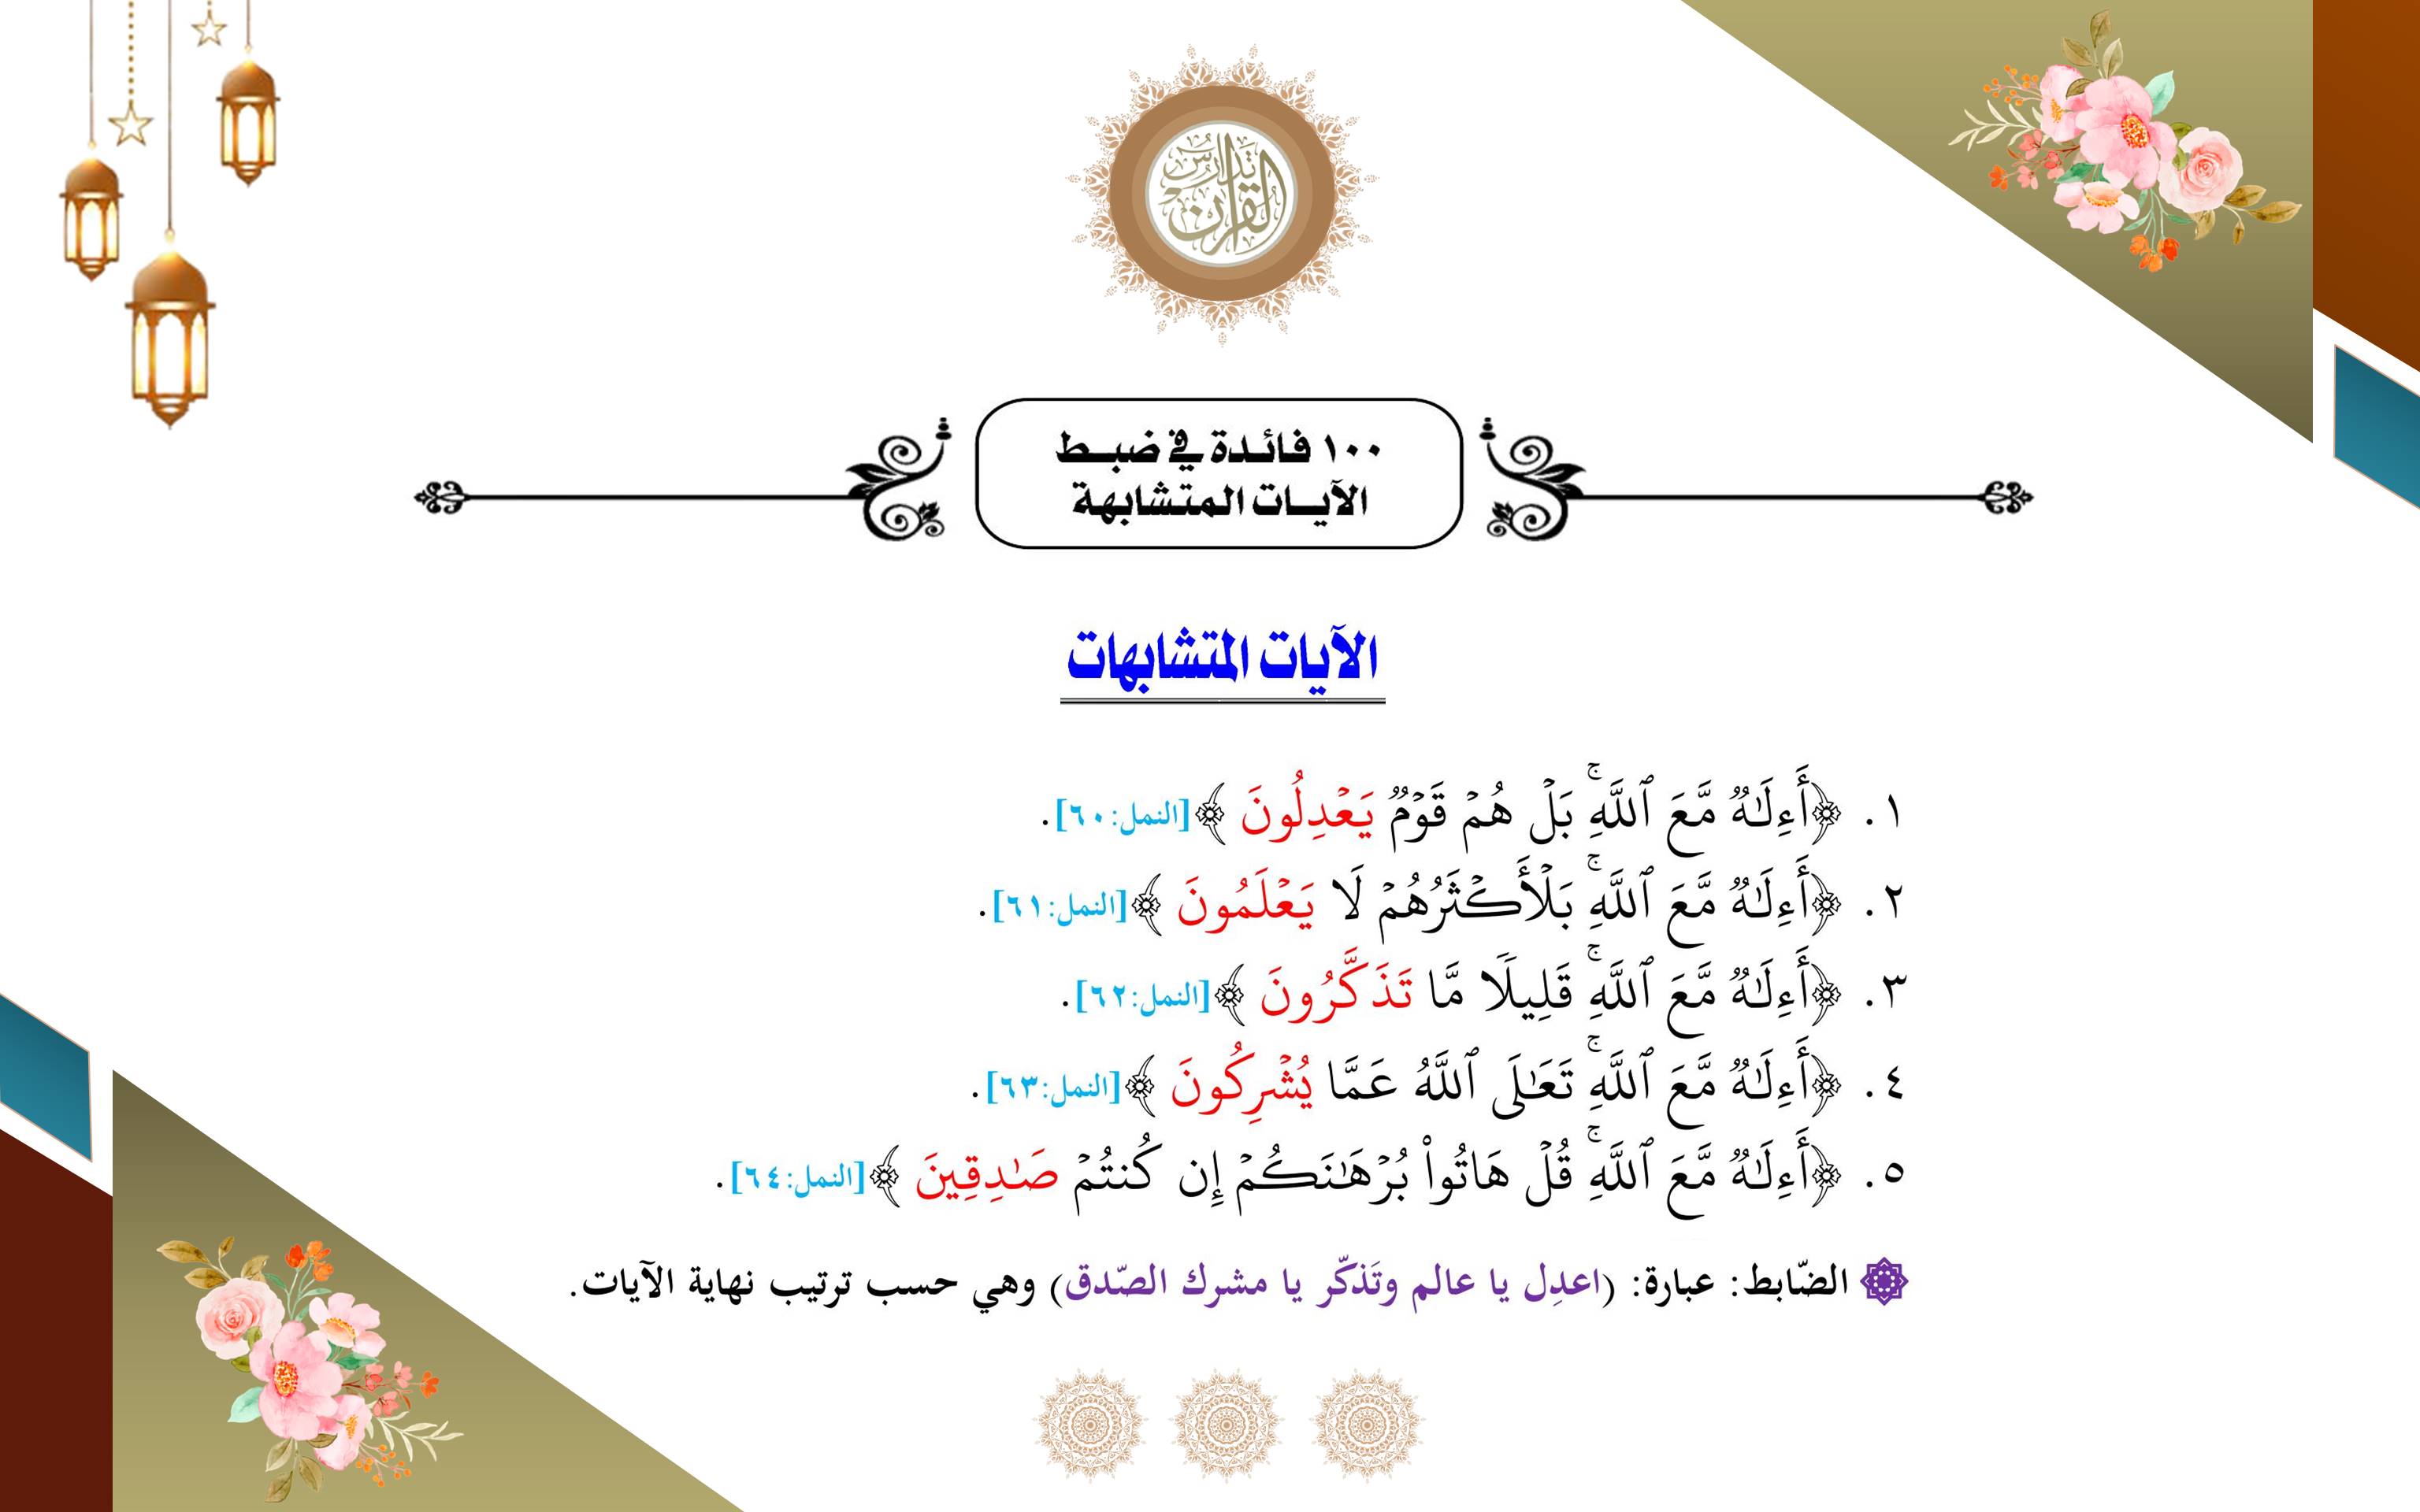 تدارس
القرآن
١٠٠ فائدة في ضبط
الآيات المتشابهة
الآيات المتشابهات
١. ﴿أَءِلَٰهٌ مَّعَ ٱللَّهِۚ بَلۡ هُمۡ قَوۡمٌ يَعۡدِلُونَ ﴾[النمل:٦٠].
٢. ﴿أَءِلَٰهٌ مَّعَ ٱللَّهِۚ بَلۡ أَكۡثَرُهُمۡ لَا يَعۡلَمُونَ ﴾[النمل:٦١].
٣. ﴿أَءِلَٰهٌ مَّعَ ٱللَّهِۚ قَلِيلٗا مَّا تَذَكَّرُونَ ﴾[النمل:٦٢].
٤. ﴿أَءِلَٰهٌ مَّعَ ٱللَّهِۚ تَعَٰلَى ٱللَّهُ عَمَّا يُشۡرِكُونَ ﴾[النمل:٦٣].
٥. ﴿أَءِلَٰهٌ مَّعَ ٱللَّهِۚ قُلۡ هَاتُواْ بُرۡهَٰنَكُمۡ إِن كُنتُمۡ صَٰدِقِينَ ﴾[النمل:٦٤].
الضّابط: عبارة: (اعدِل يا عالم وتَذكّر يا مشرك الصّدق) وهي حسب ترتيب نهاية الآيات.